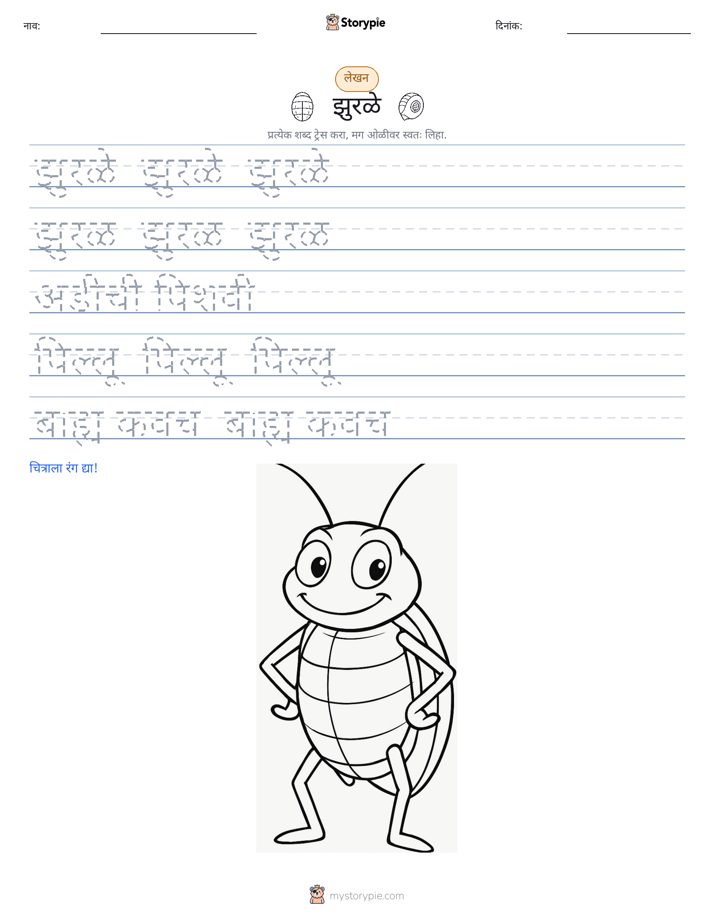 नाव: Storypie दिनांक:
लेखन
झुरळे
प्रत्येक शब्द ट्रेस करा, मग ओळीवर स्वतः लिहा.
झुरळे झुरळे झुरळे
झुरळ झुरळ झुरळ
अंडींची पिशवी
पिल्लू पिल्लू पिल्लू
बाह्य कवच बाह्य कवच
चित्राला रंग द्या!
mystorypie.com